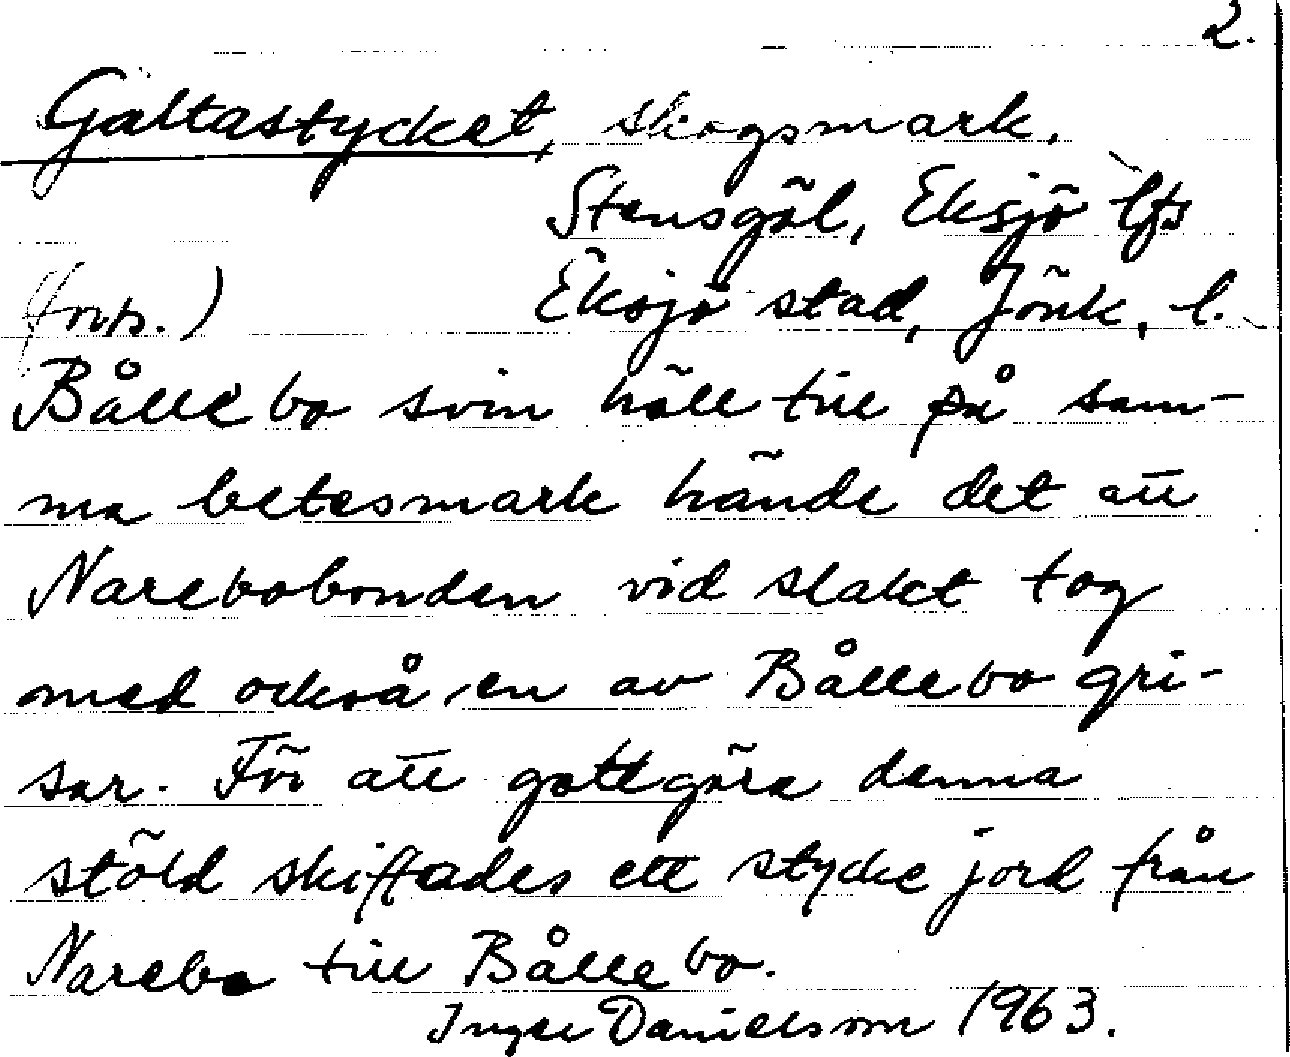 2.
Galtastycket, skogsmark.
Stensgöl, Eksjö lfs
(forts.) Eksjö stad, Jönk. l.
Bållebo svin höll till på sam-
ma betesmark hände det att
Narebobonden vid slakt tog
med också en av Bållebo gri-
sar. För att gottgöra denna
stöld skiftades ett stycke jord från
Narebo till Bållebo.
Inger Danielsson 1963.